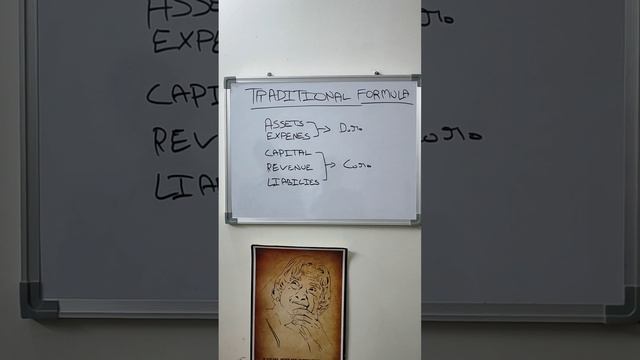 TRADITIONAL FORMULA
ASSETS
EXPENES
CAPITAL
REVENUE
LIABILIES